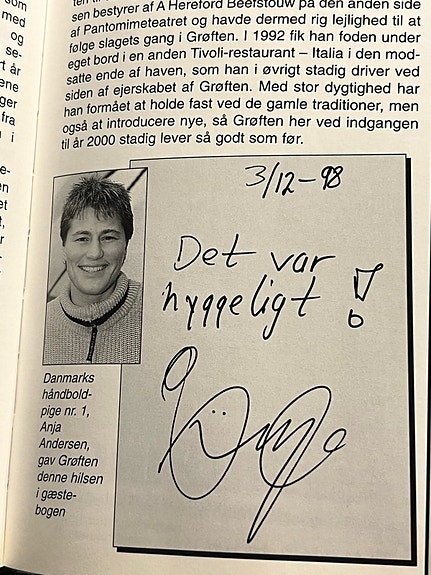 som
med
og
se-
rt år
ene
ger
fra
g i
sen bestyrer af A Hereford Beefstouw på den anden side
af Pantomimeteatret og havde dermed rig lejlighed til at
følge slagets gang i Grøften. I 1992 fik han foden under
eget bord i en anden Tivoli-restaurant – Italia i den mod-
satte ende af haven, som han i øvrigt stadig driver ved
siden af ejerskabet af Grøften. Med stor dygtighed har
han formået at holde fast ved de gamle traditioner, men
også at introducere nye, så Grøften her ved indgangen
til år 2000 stadig lever så godt som før.
3/12-98
Det var
hyggeligt!
Danmarks
håndbold-
pige nr. 1,
Anja
Andersen,
gav Grøften
denne hilsen
i gæste-
bogen